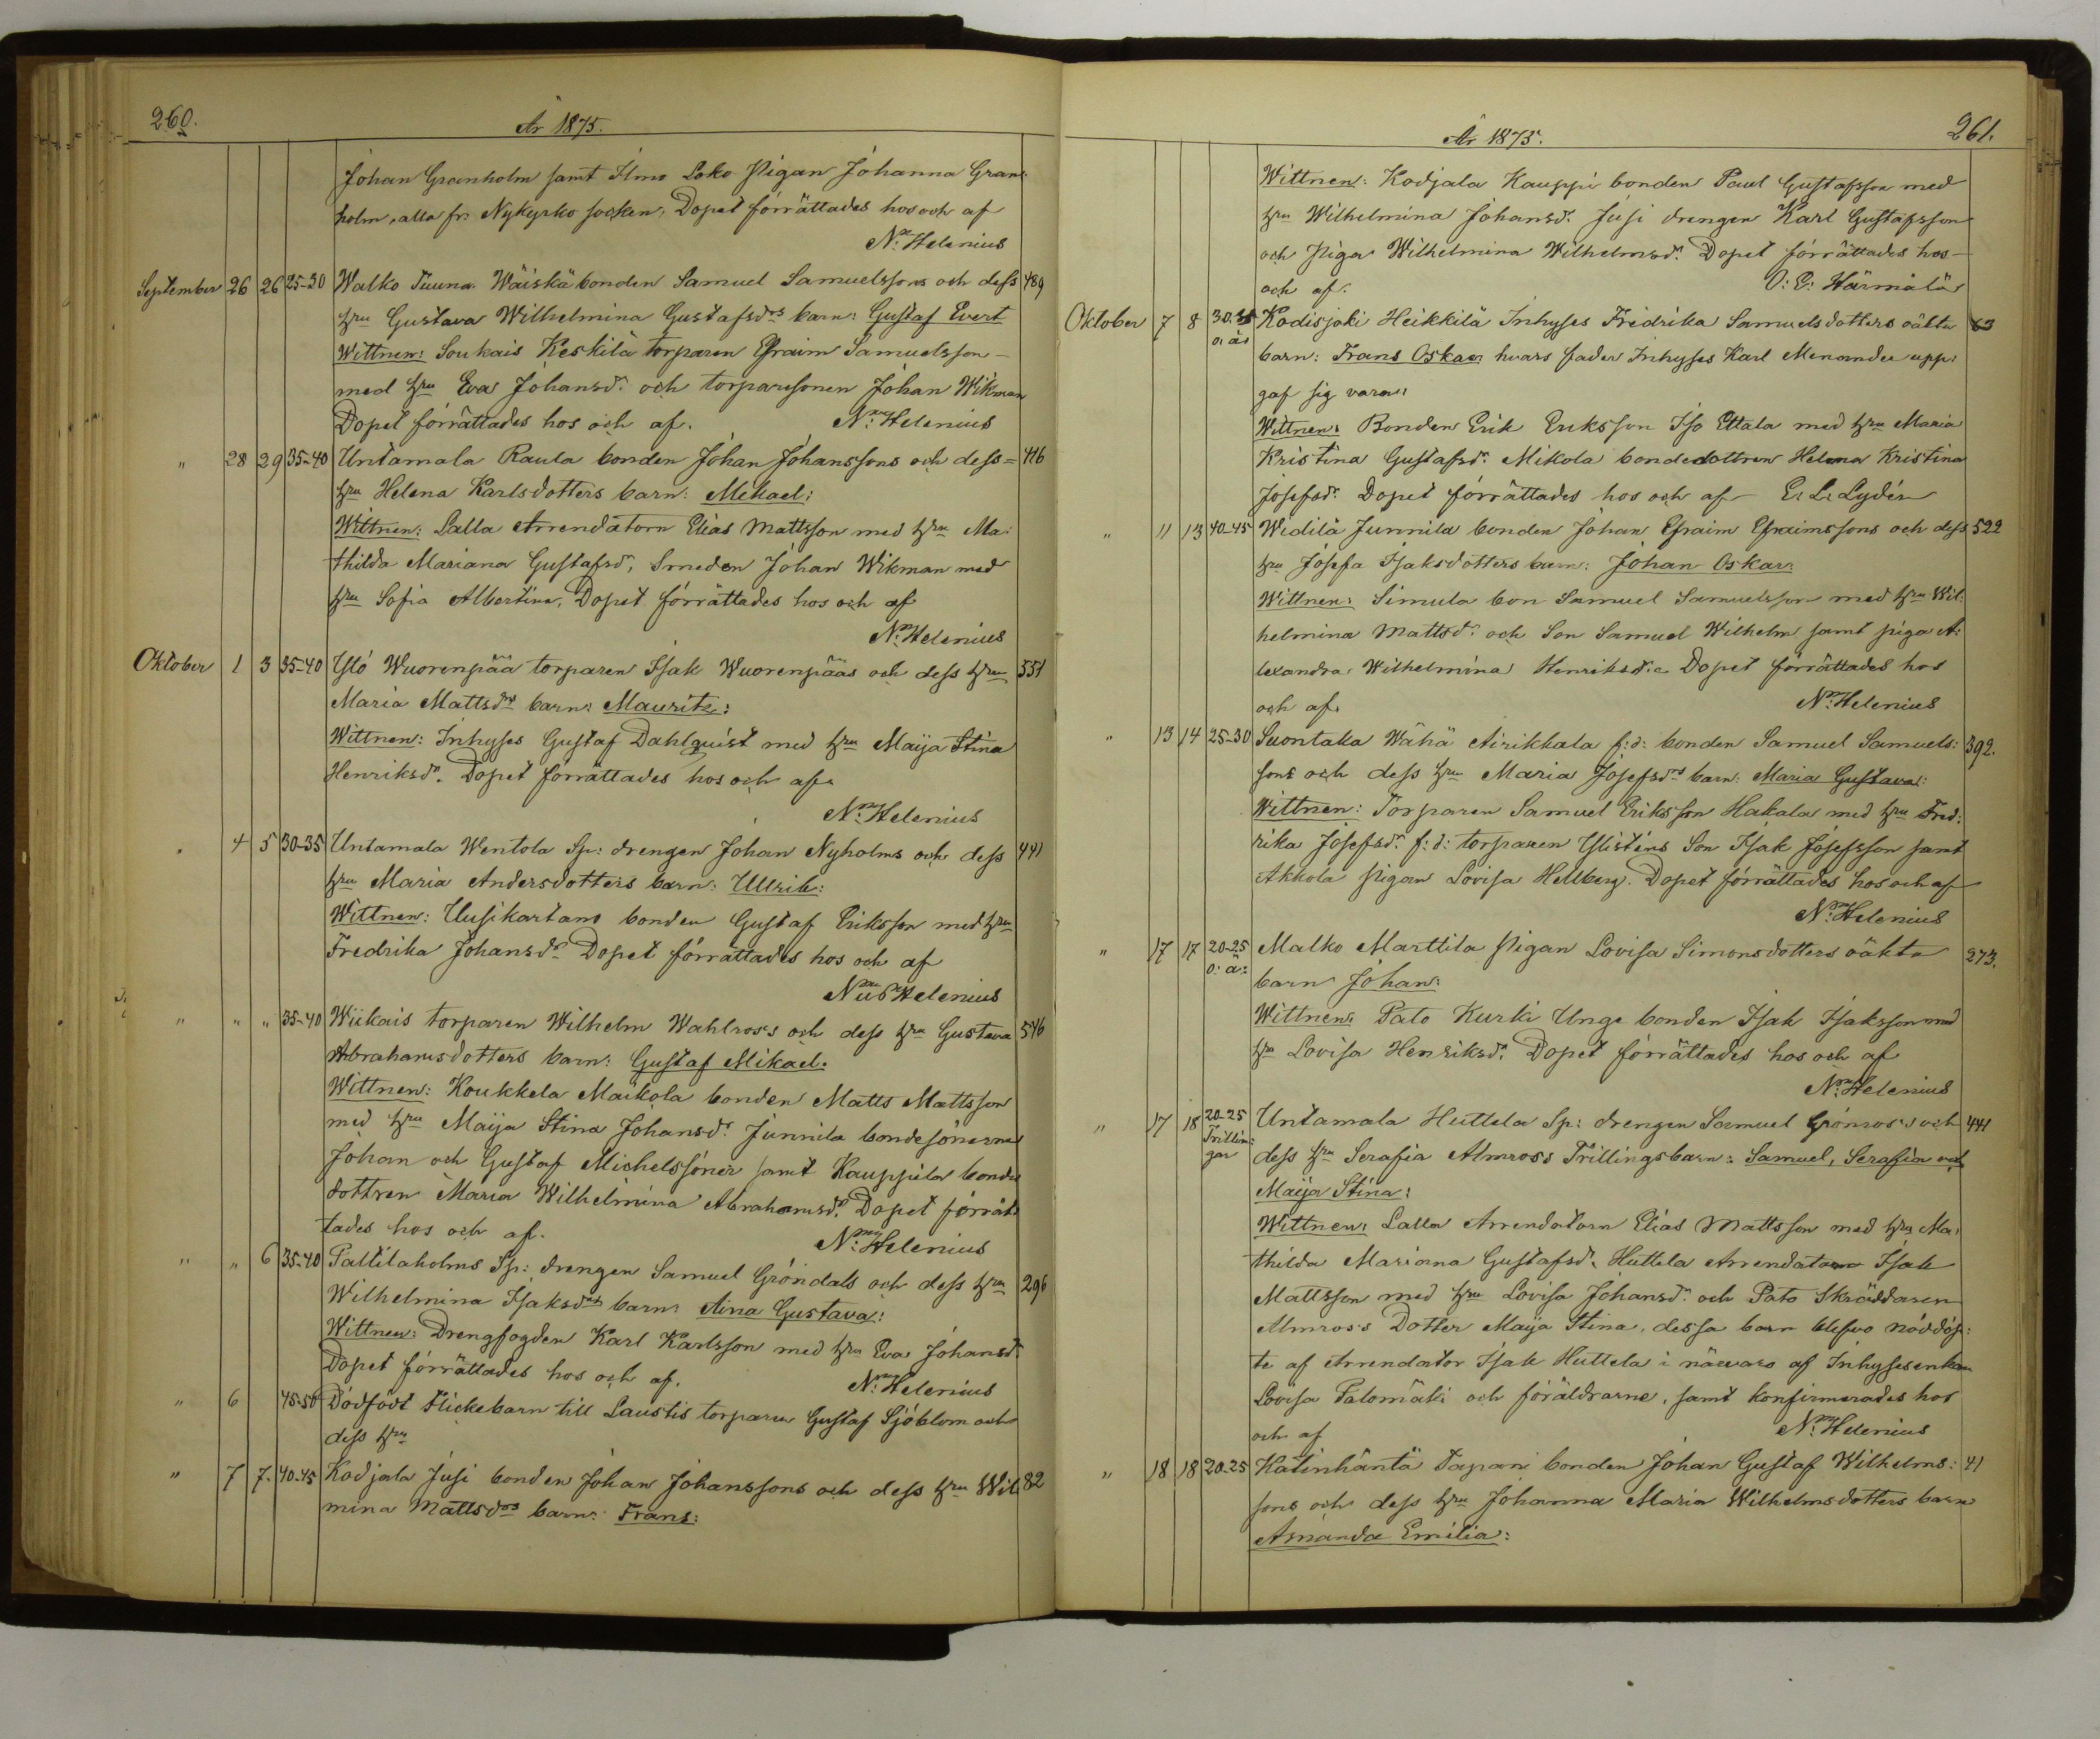 260.
År 1875.
Johan Granholm samt Ilmo Loko Pigan Johanna Gran-
holm, alla fr. Nykyrko socken, Dopet förrättades hos och af
N: Helenius
September 26 26 25-30 Walko Tuuna Wäiskä bonden Samuel Samuelssons och dess 489
hru Gustava Wilhelmina Gustafsdrs barn: Gustaf Evert
Wittnen: Soukais Keskilä torparen Efraim Samuelsson
med hru Eva Johansdr och torparesonen Johan Wikman
Dopet förrättades hos och af. N: Helenius
" 28 29 35-40 Untamala Raula bonden Johan Johanssons och dess 416
hru Helena Karlsdotters barn: Mikael:
Wittnen: Lalla Arrendatorn Elias Mattsson med hru Ma:
thilda Mariana Gustafsdr, Smeden Johan Wikman med
hru Sofia Albertina, Dopet förrättades hos och af
N: Helenius
Oktober 1 3 35-40 Ylö Wuorenpää torparen Isak Wuorenpääs och dess hru 551
Maria Mattsdrs barn: Mauritz:
Wittnen: Inhyses Gustaf Dahlquist med hru Maija Stina
Henriksdr. Dopet förrättades hos och af.
N: Helenius
" 4 5 30-35 Untamala Wentola Sp: drengen Johan Nyholms och dess 441
hru Maria Andersdotters barn: Ullrik:
Wittnen: Uusikartano bonden Gustaf Eriksson med hru
Fredrika Johansdr Dopet förrättades hos och af
Helenius
" " " 35-40 Wiikais torparen Wilhelm Wahlross's och dess hru Gustava 546
Abrahamsdotters barn: Gustaf Mikael.
Wittnen: Koukkela Maikola bonden Matts Mattsson
med hru Maija Stina Johansdr. Junnila bondesönerne
Johan och Gustaf Michelssöner samt Kauppila bonde
dottren Maria Wilhelmina Abrahamsdr. Dopet förrät-
tades hos och af. N: Helenius
" " 6 35-40 Pattilaholms Sp: drengen Samuel Gröndals och dess hru 296
Wilhelmina Isaksdrs barn: Aina Gustava:
Wittnen: Drengfogden Karl Karlsson med hru Eva Johansdr
Dopet förrättades hos och af. N: Helenius
" 6 45-50 Dödfödt flickebarn till Laustis torparen Gustaf Sjöblom och
dess hru
" 7 7. 40-45 Kodjala Jusi bonden Johan Johanssons och dess hru Wil 82
mina Mattsdrs barn: Frans:
År 1875.
261.
Wittnen: Kodjala Kauppi bonden Paul Gustafsson med
hru Wilhelmina Johansdr. Jusi drengen Karl Gustafsson
och Piga Wilhelmina Wilhelmsdr. Dopet förrättades hos
och af. O: E: Härmälä
Oktober 7 8 30-35 Kodisjoki Heikkilä Inhyses Fredrika Samuelsdotters oäkta 63
o: ä:
barn: Frans Oskar: hvars fader Inhyses Karl Menander upp:
gaf sig vara:
Wittnen: Bonden Erik Eriksson Iso Ettala med hru Maria
Kristina Gustafsdr. Mikola bondedottren Helena Kristina
Josefsdr. Dopet förrättades hos och af E: L: Lydén
" 11 13 40-45 Widilä Junnila bonden Johan Efraim Efraimssons och dess 522
hru Josefa Isaksdotters barn: Johan Oskar:
Wittnen: Simula bon Samuel Samuelsson med hru Wil:
helmina Mattsdr. och Son Samuel Wilhelm samt piga A:
lexandra Wilhelmina Henriksdr. Dopet förrättades hos
och af. N: Helenius
" 13 14 25-30 Suontaka Wähä Airikkala f:d: bonden Samuel Samuels: 392.
sons och dess hru Maria Josefsdrs barn: Maria Gustava:
Wittnen: Torparen Samuel Eriksson Hakala med hru Fred:
rika Josefsdr. f:d: torparen Son Isak Josefsson samt
Akkola pigan Lovisa Hellberg. Dopet förrättades hos och af
N: Helenius
" 17 17 20-25 Malko Marttila Pigan Lovisa Simonsdotters oäkta 273.
o: ä:
barn Johan:
Wittnen: Pato Kurki Unge bonden Isak Isaksson med
hru Lovisa Henriksdr. Dopet förrättades hos och af
N: Helenius
" 17 18 20-25 Untamala Huttela Sp: drengen Samuel Grönross's och 441
Trillin:
gar dess hru Serafia Almross Trillingsbarn: Samuel, Serafia och
Maija Stina:
Wittnen: Lalla Arrendatorn Elias Mattsson med hru Ma:
thilda Marianna Gustafsdr. Huttela Arrendatorn Isak
Mattsson med hru Lovisa Johansdr. och Pato Skräddaren
Almross's Dotter Maija Stina, dessa barn blefvo nöddöp:
te af Arrendator Isak Huttela i närvaro af Inhysesenkan
Lovisa Palomäki och föräldrarne, samt konfirmerades hos
och af N: Helenius
" 18 18 20-25 Katinhäntä Tapani bonden Johan Gustaf Wilhelms: 41
sons och dess hru Johanna Maria Wilhelmsdotters barn
Amanda Emilia: